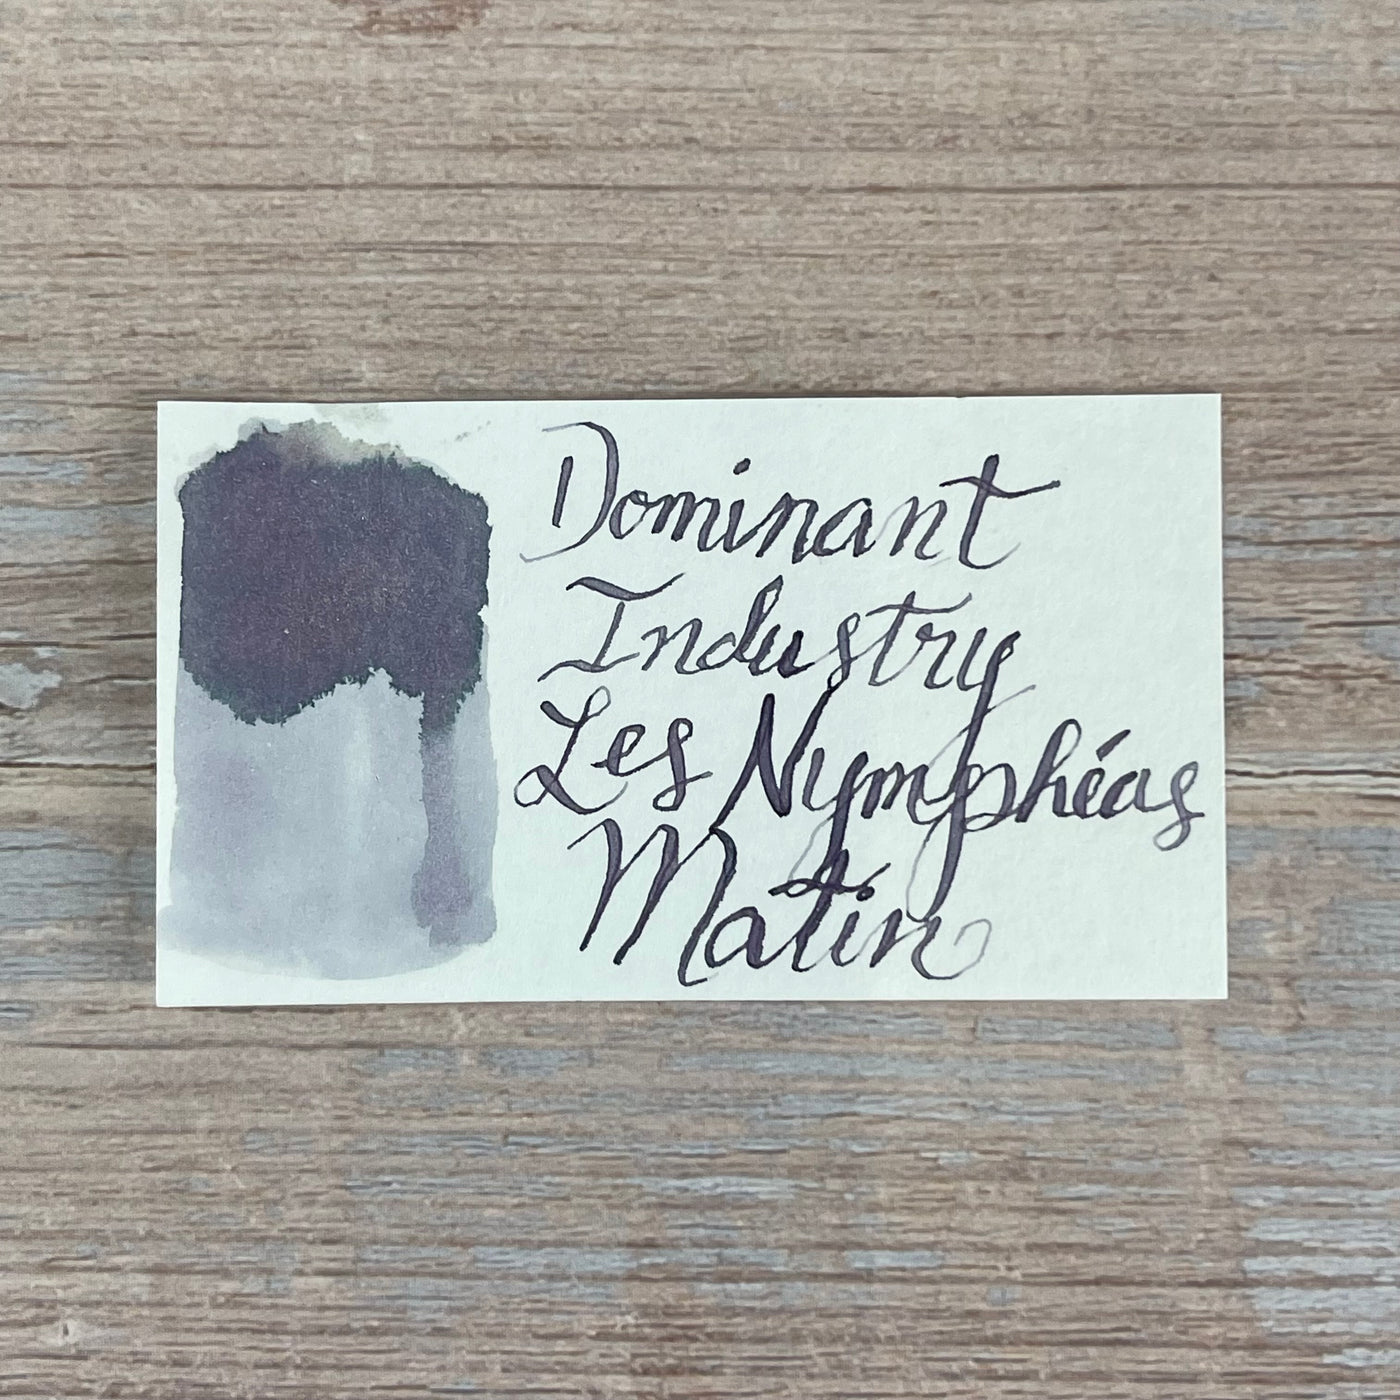 Dominant
Industry
Les Nymphéas
Matin